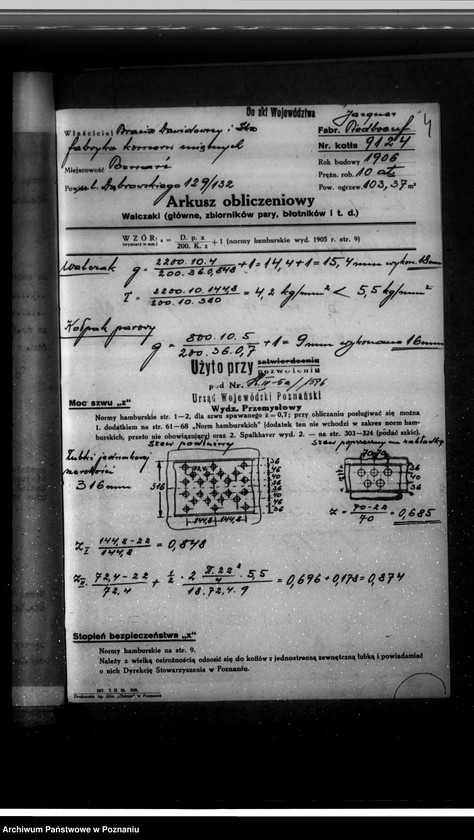 Do akt Województwa
4
Właściciel Bracia Dawidowscy i Ska
fabryka
Miejscowość Poznań
Powiat ul. Dąbrowskiego 129/132
Jacques
Fabr. Piedboeuf
Nr. kotła 9124
Rok budowy 1906
Prężn. rob. 10 at.
Pow. ogrzew. 103,37 m²
Arkusz obliczeniowy
Walczaki (główne, zbiorników pary, błotników i t. d.)
WZÓR: s = D. p. x / 200. K. z + 1 (normy hamburskie wyd. 1905 r. str. 9)
(wymiary w mm.)
Walczak g = 2200.10.4 / 200.36.0,848 + 1 = 14,4 + 1 = 15,4 mm wykon. 18 mm
τ = 2200.10.144,8 / 200.10.380 = 4,2 kg/mm² < 5,5 kg/mm²
Kołpak parowy
g = 800.10.5 / 200.36.0,7 + 1 = 9 mm wykonano 16 mm
Użyto przy zatwierdzeniu
pozwoleniu
pod Nr.
Urząd Wojewódzki Poznański
Wydz. Przemysłowy
Moc szwu „z"
Normy hamburskie str. 1—2, dla szwu spawanego z = 0,7; przy obliczaniu posługiwać się można
1. dodatkiem na str. 61—68 „Norm hamburskich" (dodatek ten nie wchodzi w zakres norm ham-
burskich, przeto nie obowiązujący) oraz 2. Spalkhaver wyd. 2. — na str. 303—324 (podać szkic).
Szew podłużny
Szew poprzeczny na nakładkę
Łubki jednakowej
szerokości
316 mm
316
36
46
40
40
40
46
36
144,8 144,8
70 70
36
40
36
z = 70-22 / 70 = 0,685
z I 144,8-22 / 144,8 = 0,848
z II 72,4-22 / 72,4 + 1/2 . 2 π.22² / 4 . 5,5 / 18.72,4.9 = 0,696 + 0,178 = 0,874
Stopień bezpieczeństwa „x"
Normy hamburskie na str. 9.
Należy z wielką ostrożnością odnosić się do kotłów z jednostronną zewnętrzną łubką i powiadamiać
o nich Dyrekcję Stowarzyszenia w Poznaniu.
Archiwum Państwowe w Poznaniu